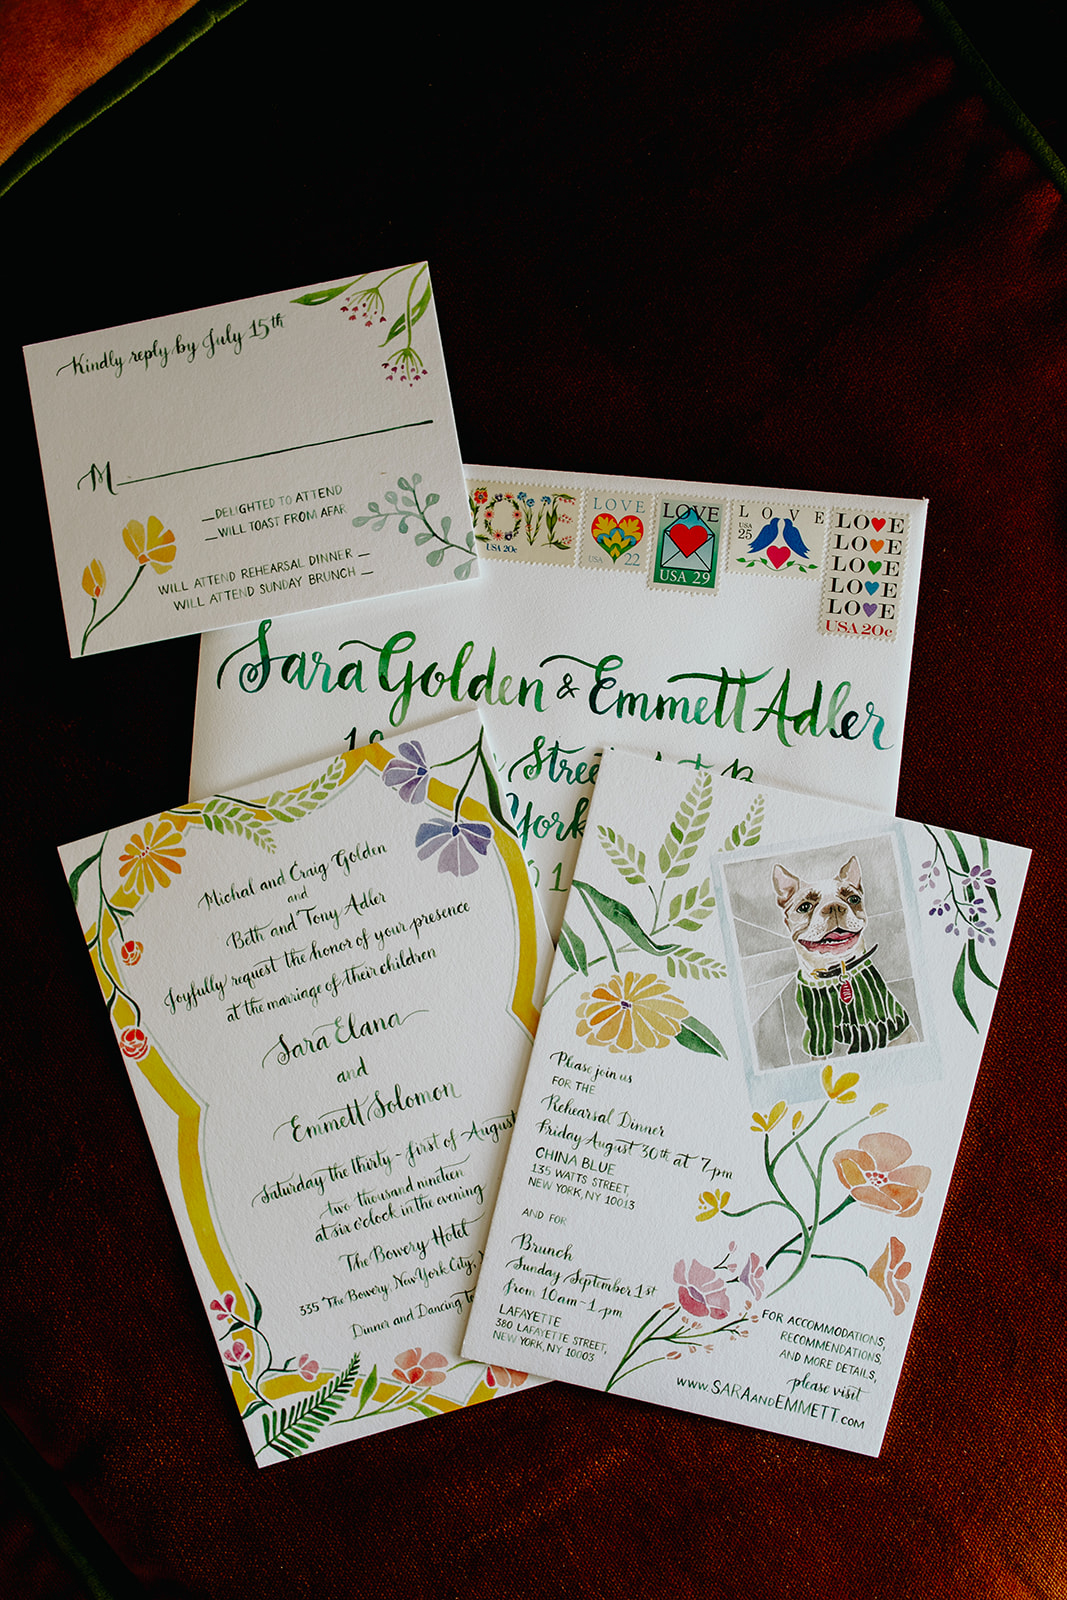 Kindly reply by July 15th
M
DELIGHTED TO ATTEND
WILL TOAST FROM AFAR
WILL ATTEND REHEARSAL DINNER
WILL ATTEND SUNDAY BRUNCH
LOVE
USA 20c
LOVE
USA 22
LOVE
USA 29
LOVE
USA
25
LOVE
LOVE
LOVE
LOVE
LOVE
USA 20c
Sara Golden & Emmett Adler
Michal and Craig Golden
and
Beth and Tony Adler
Joyfully request the honor of your presence
at the marriage of their children
Sara Elana
and
Emmett Solomon
Saturday the thirty-first of August
two thousand nineteen
at six o'clock in the evening
The Bowery Hotel
335 The Bowery, New York City,
Dinner and Dancing to
Please join us
FOR THE
Rehearsal Dinner
Friday August 30th at 7pm
CHINA BLUE
135 WATTS STREET,
NEW YORK, NY 10013
AND FOR
Brunch
Sunday September 1st
from 10am-1pm
LAFAYETTE
380 LAFAYETTE STREET,
NEW YORK, NY 10003
FOR ACCOMMODATIONS,
RECOMMENDATIONS,
AND MORE DETAILS,
please visit
www.SARAandEMMETT.com